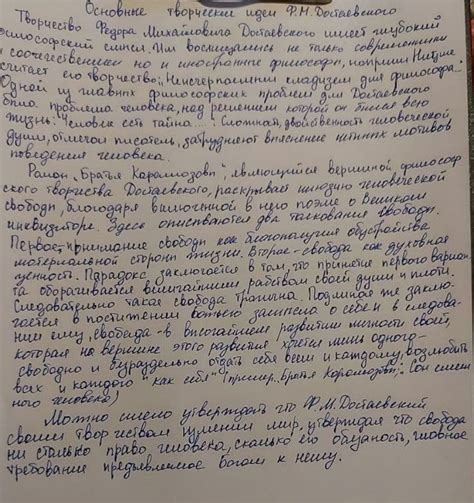 Основные творческие идеи Ф.М.Достаевского
Творчество Федора Михайловича Достаевского имеет глубокий
философский смысл. Им восхищались не только современники
и соотечественники но и иностранные философы, например Ницше
считает его творчество: "Неисчерпаемым кладезем для философа."
Одной из главных философских проблем для Достаевского
была проблема человека, над решением которой он бился всю
жизнь: "Человек есть тайна..." Сложность, двойственность человеческой
души, отмечал писатель, затрудняют выяснение истиных мотивов
поведения человека.
Роман "Братья Карамазовы", являющийся вершиной философ
ского творчества Достаевского, раскрывает иллюзию человеческой
свободы, благодаря включенной в него поэме о Великом
инквизиторе. Здесь описываются два толкования свободы.
Первое- понимание свободы как благополучия обустройства
материальной стороны жизни. Второе - свобода как духовная
ценность. Парадокс заключается в том, что принятие первого вариан-
та оборачивается величайшим рабством своей души и плоти.
Следовательно такая свобода трагична. Подлинная же заклю-
чается в постижении божьего замысла о себе и в следова-
нии ему, свобода - в высочайшем развитии личности своей,
которая на вершине этого развития хочет лишь одного-
свободно и безраздельно отдать себя всем и каждому, возлюбить
всех и каждого "как себя" (пример. "Братья Карамазовы";
ного человека)
Можно смело утверждать что Ф.М.Достаевский
своим творчеством изменил мир, утверждая что свобода
ни столько право человека, сколько его обязаность, главное
требование предъявляемое богом к нему.